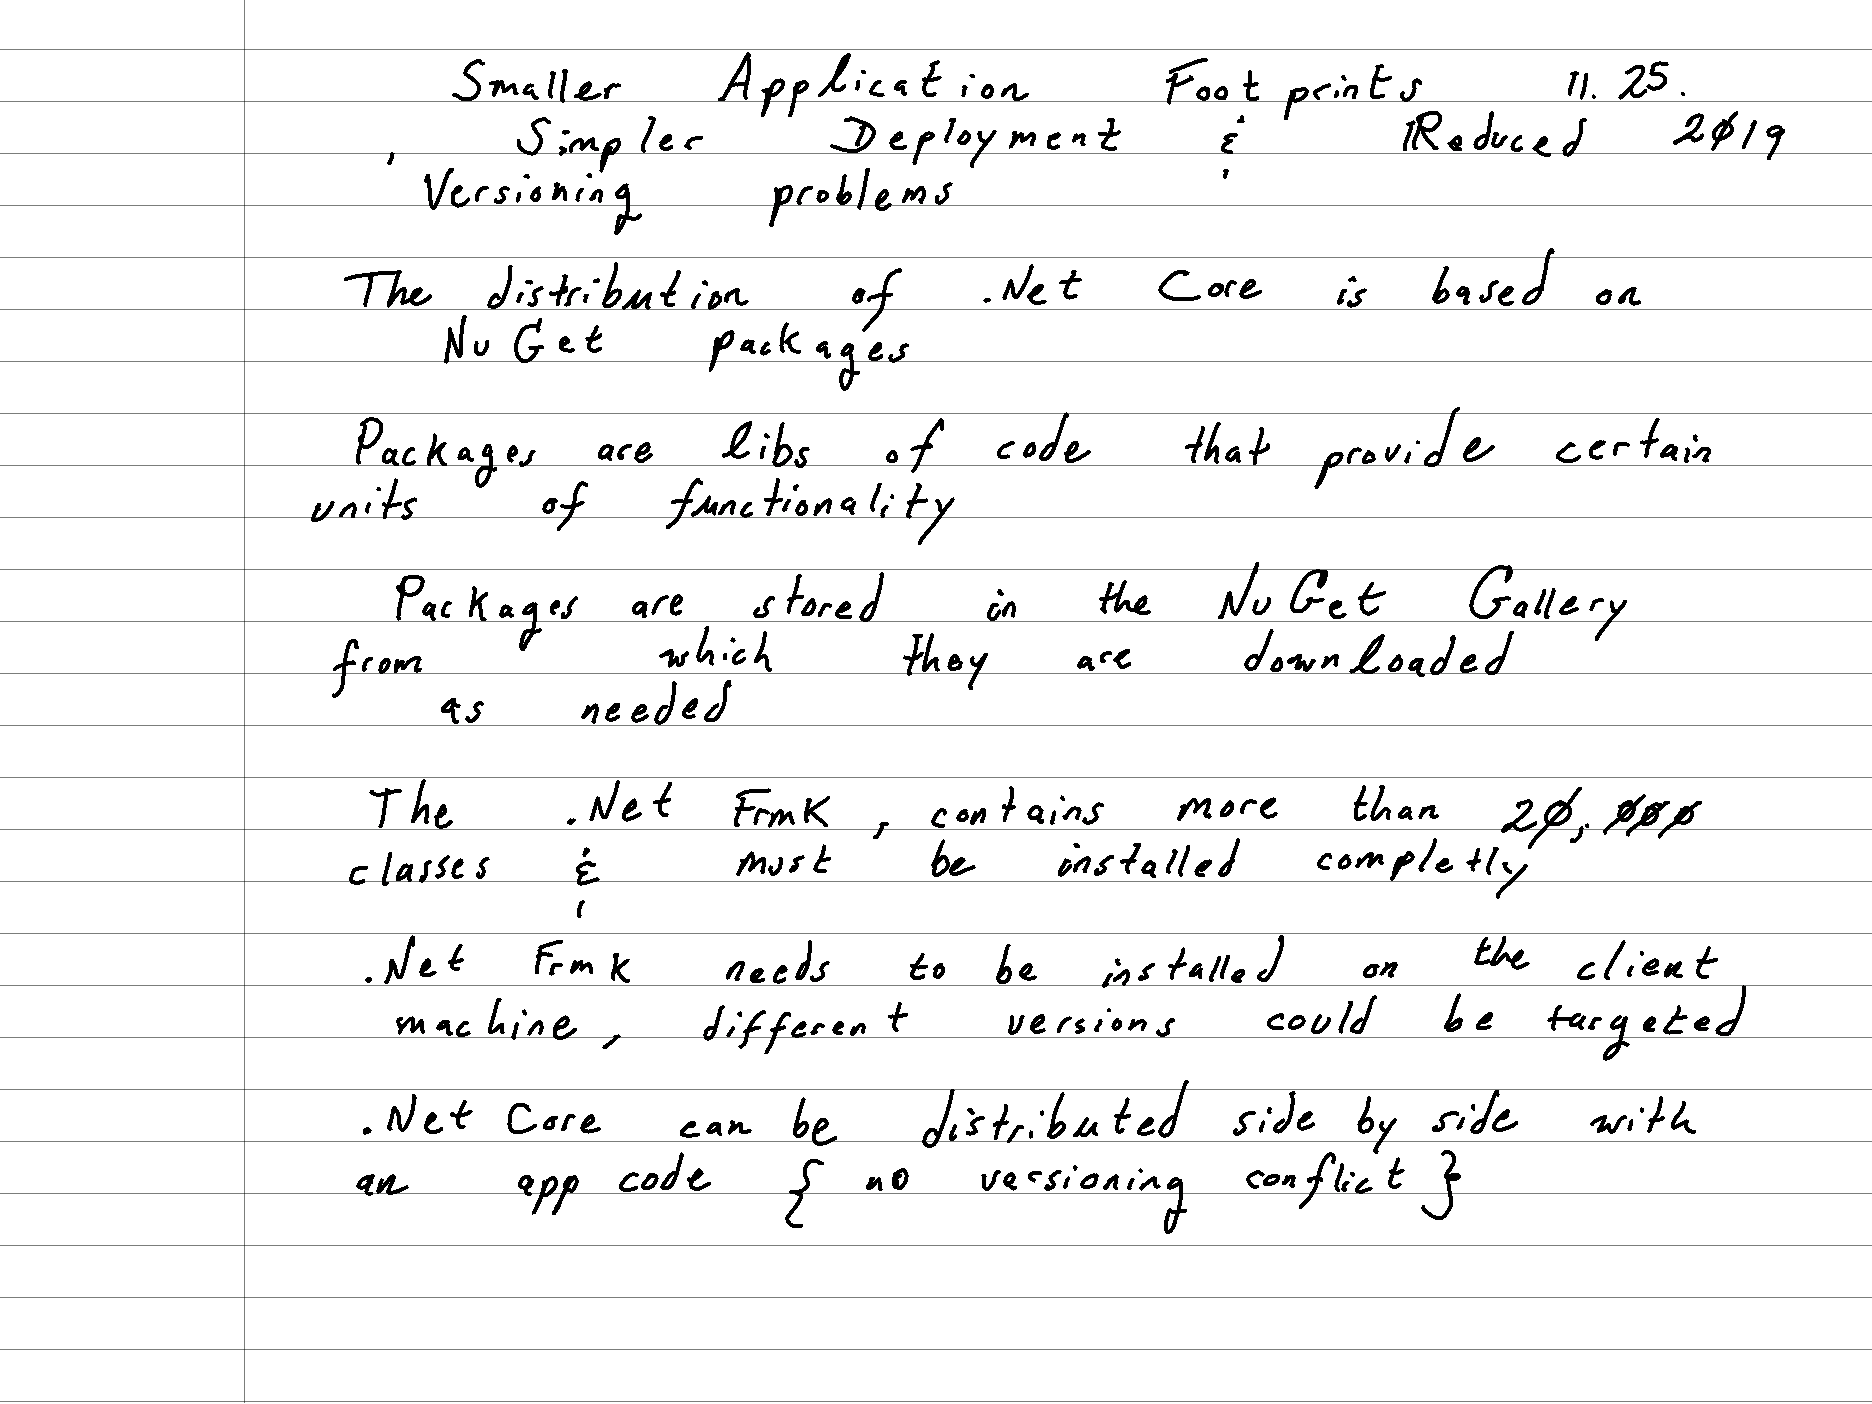 Smaller Application Footprints 11.25.
, Simpler Deployment & Reduced 2019
Versioning problems
The distribution of .Net Core is based on
NuGet packages
Packages are libs of code that provide certain
units of functionality
Packages are stored in the NuGet Gallery
from which they are downloaded
as needed
The .Net Frmk, contains more than 20,000
classes & must be installed completly
.Net Frmk needs to be installed on the client
machine, different versions could be targeted
.Net Core can be distributed side by side with
an app code { no versioning conflict }